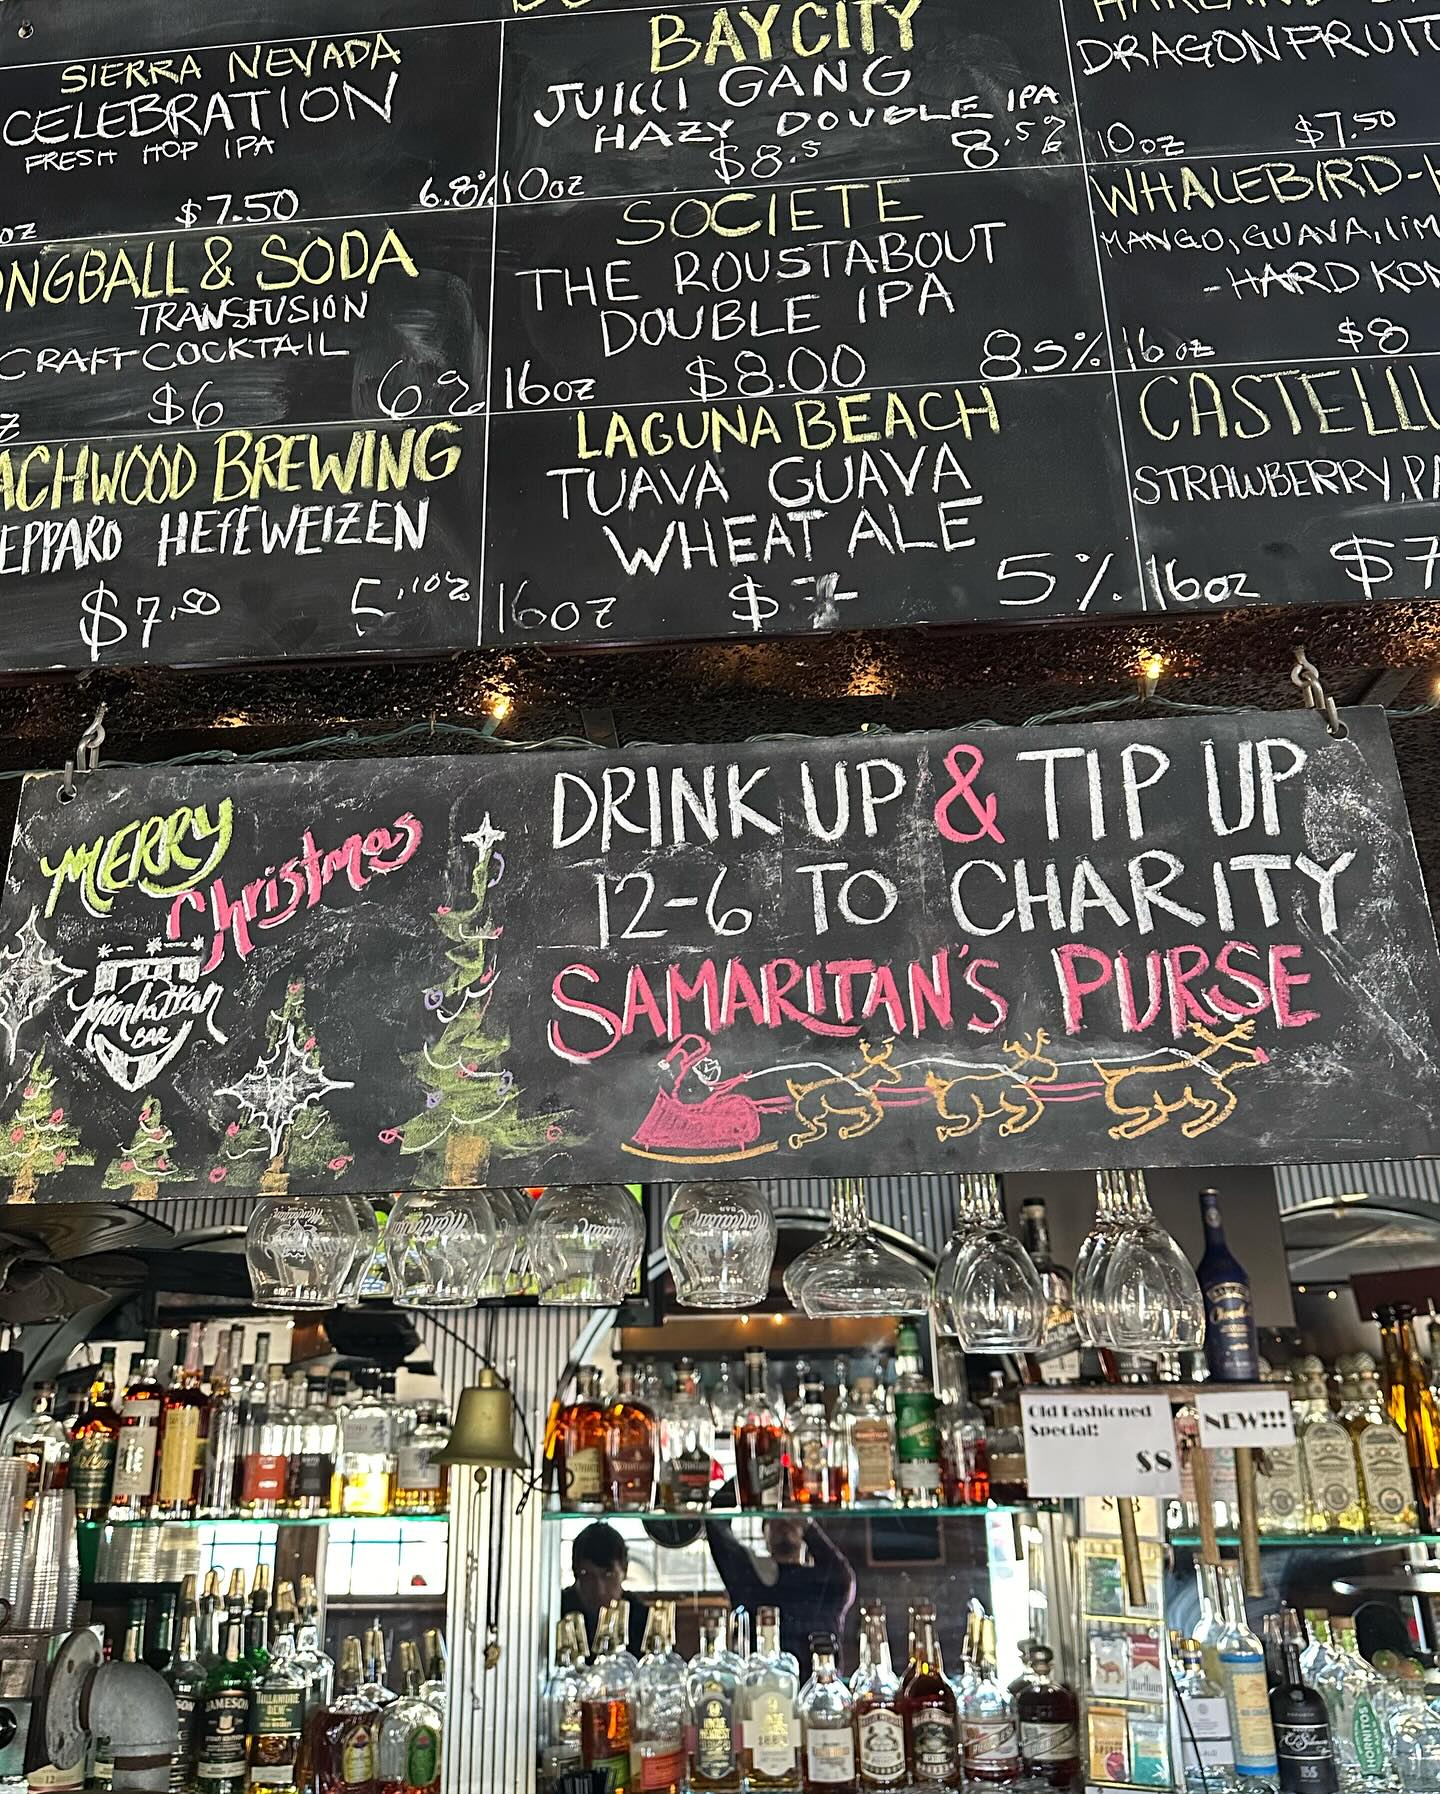 SIERRA NEVADA
CELEBRATION
FRESH HOP IPA
oz $7.50 6.8%
& SODA
TRANSFUSION
CRAFT COCKTAIL
$6 6%
BREWING
HEFEWEIZEN
$7.50 5.10%
BAY CITY
JUICCI GANG
HAZY DOUBLE IPA
10oz $8.5 8.5%
SOCIETE
THE ROUSTABOUT
DOUBLE IPA
16oz $8.00 8.5%
LAGUNA BEACH
TUAVA GUAVA
WHEAT ALE
16oz $7 5%
DRAGONFRUIT
10oz $7.50
WHALEBIRD-
MANGO, GUAVA, LIM
-HARD KOM
16oz $8
STRAWBERRY,
16oz $7
MERRY
Christmas
Manhattan
BAR
DRINK UP & TIP UP
12-6 TO CHARITY
SAMARITAN'S PURSE
Old Fashioned
Special!
$8
NEW!!!
JAMESON
TULLAMORE
DEW
HORNITOS